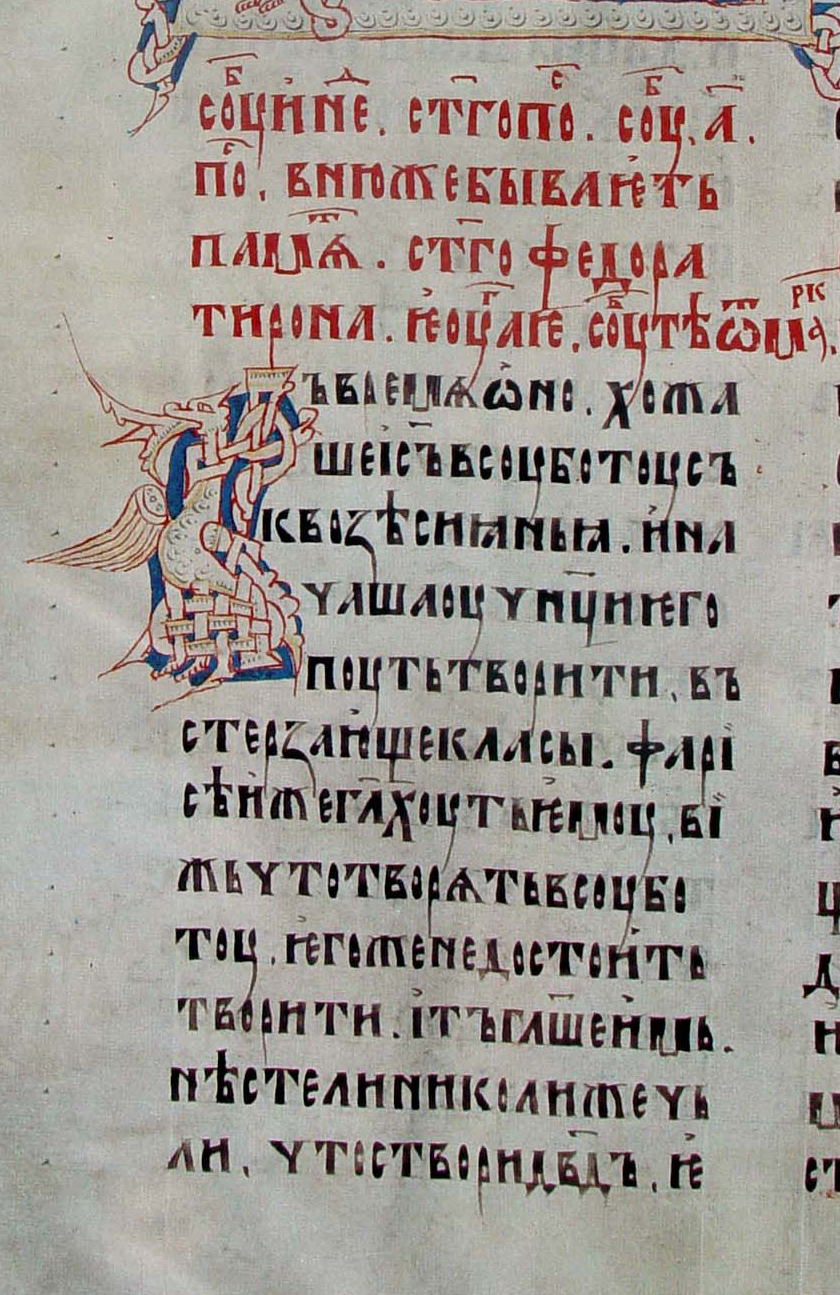 соуⷠнⷣе. ст҃гопоⷭ. соуⷠ. а҃.
поⷭ. внюжебываѥть
памѧⷮ. ст҃го федора
тирона. ѥоуаⷢѥ. соуⷠтѣѿмⷬк
ъвремѧѡно. хома
шеіс҃ъвсоуботоусъ
квозѣсиꙗньꙗ. ина
чашаоучнц҃иѥго
поутьтворити. въ
стерзаюшекласы. фарі
сѣижегл҃ахоутьѥмоу. ві
жьчтотворѧтьвсоубо
тоу. ѥгоженедостоить
творити. ітъгл҃шеимь.
нѣстелиниколижечь
ли. чтостворидв҃дъ. ѥ